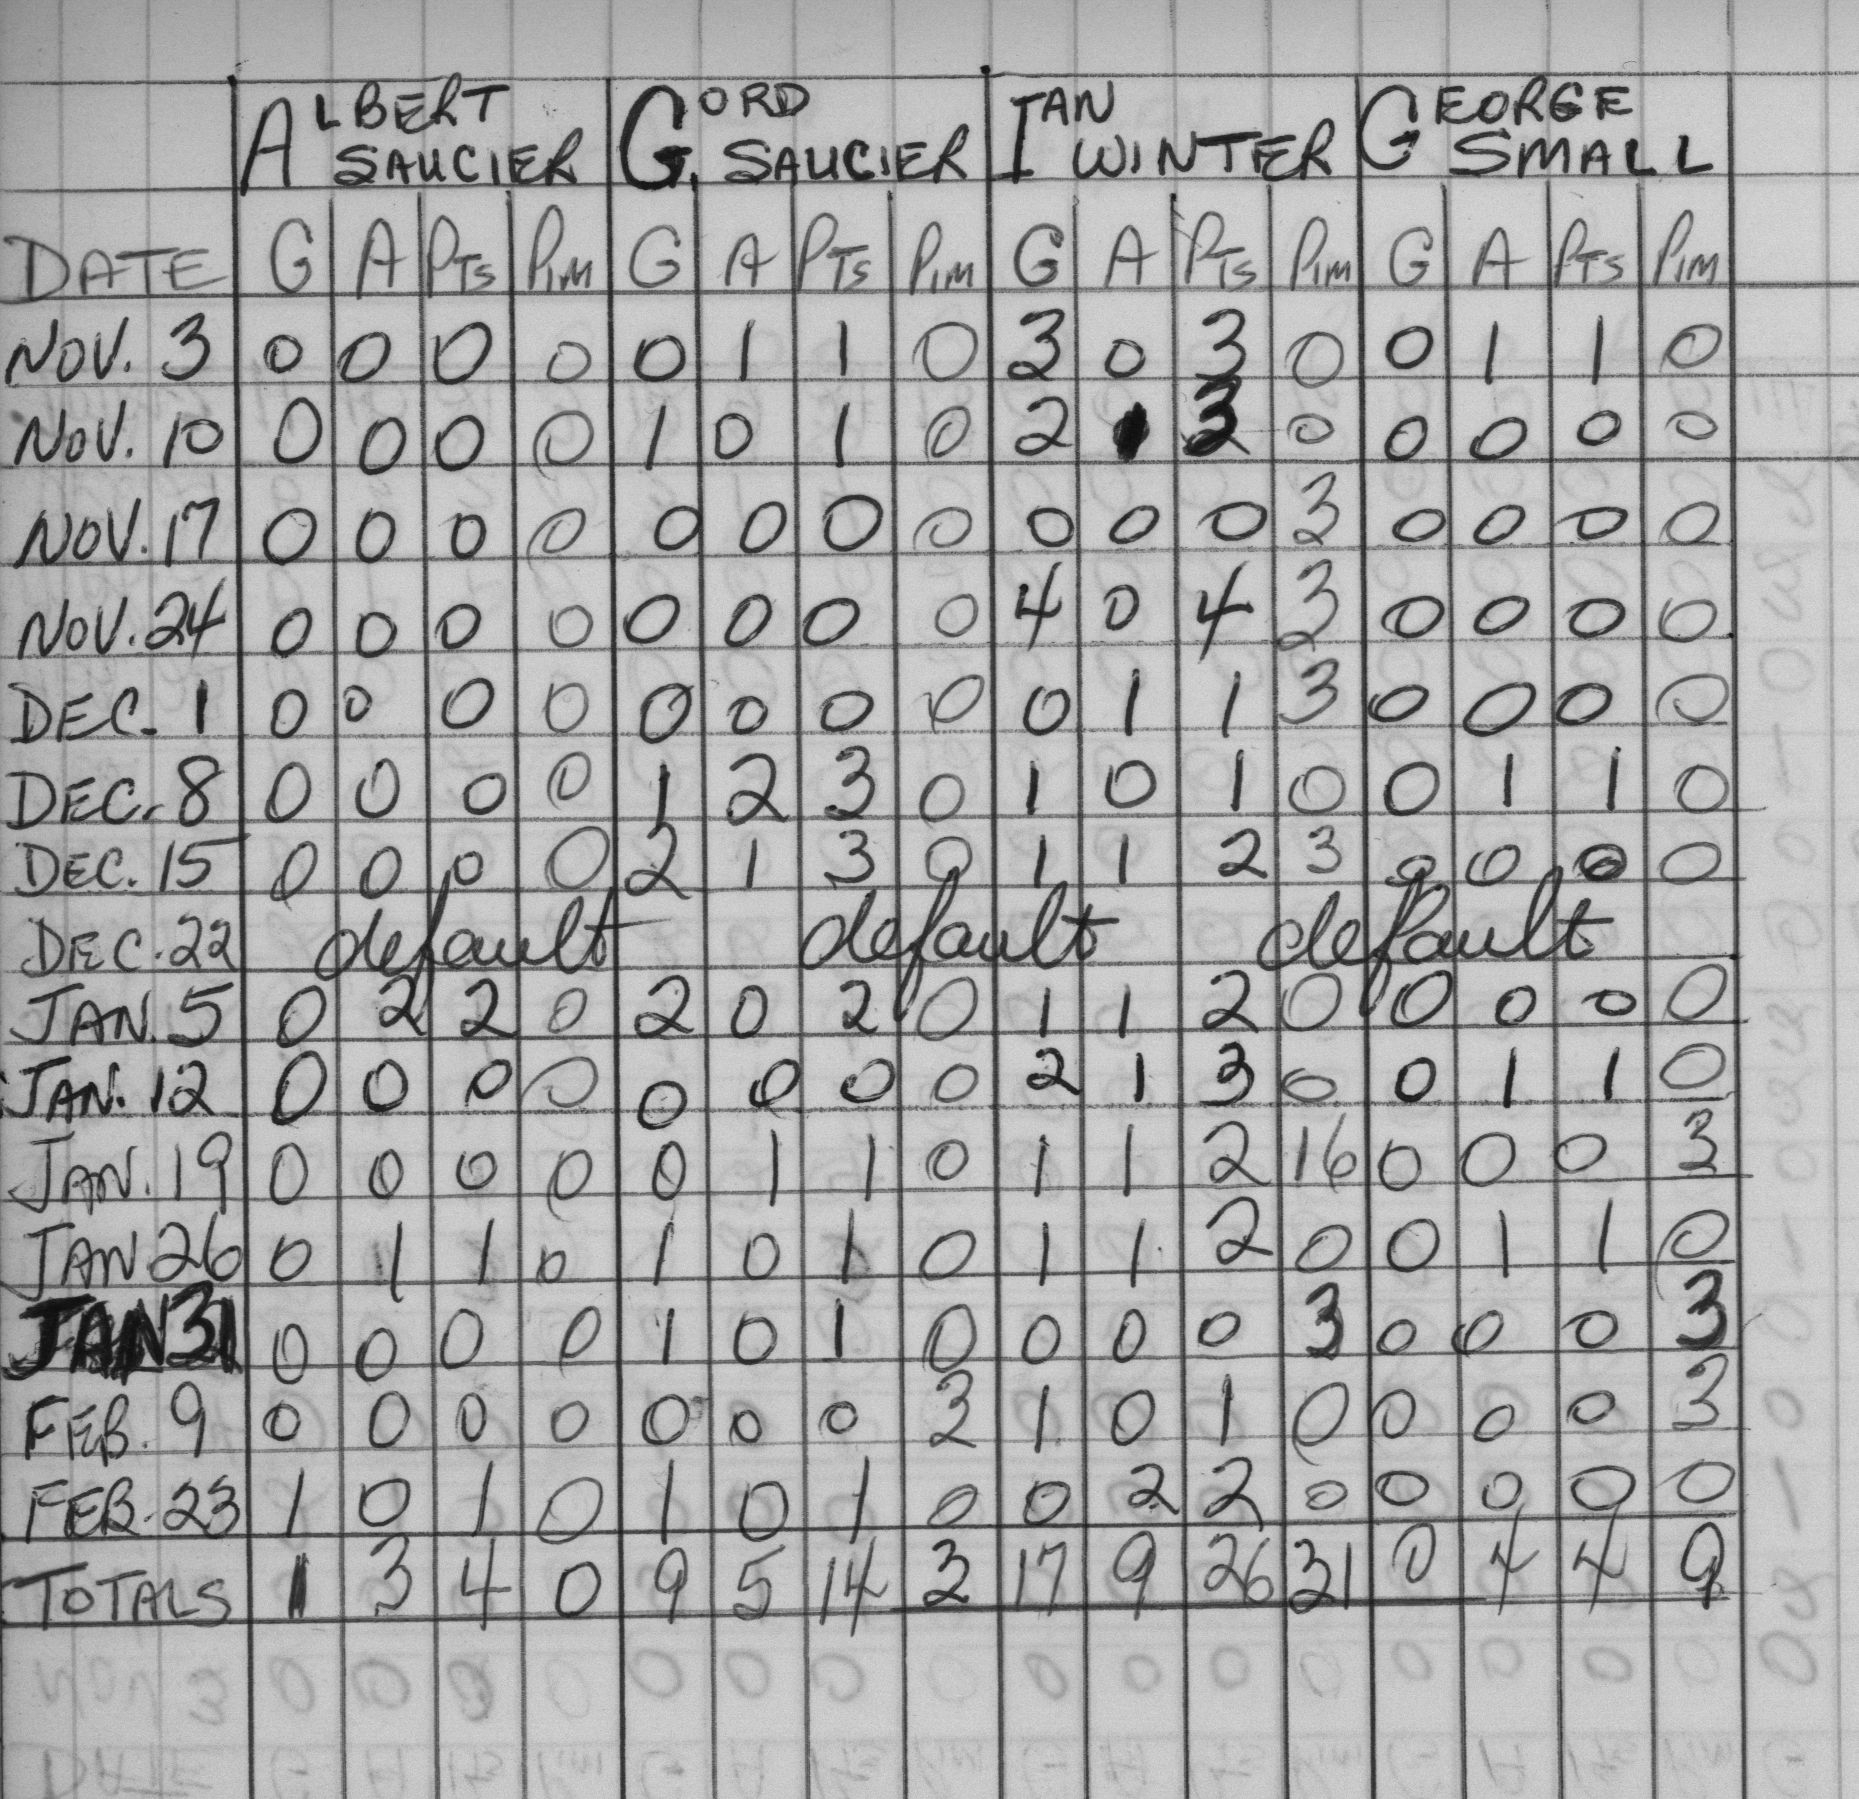 ALBERT SAUCIER GORD SAUCIER IAN WINTER GEORGE SMALL
DATE G A PTS PIM G A PTS PIM G A PTS PIM G A PTS PIM
NOV. 3 0 0 0 0 0 1 1 0 3 0 3 0 0 1 1 0
NOV. 10 0 0 0 0 1 0 1 0 2 1 3 0 0 0 0 0
NOV. 17 0 0 0 0 0 0 0 0 0 0 0 3 0 0 0 0
NOV. 24 0 0 0 0 0 0 0 0 4 0 4 3 0 0 0 0
DEC. 1 0 0 0 0 0 0 0 0 0 1 1 3 0 0 0 0
DEC. 8 0 0 0 0 1 2 3 0 1 0 1 0 0 1 1 0
DEC. 15 0 0 0 0 2 1 3 0 1 1 2 3 0 0 0 0
DEC. 22 default default default
JAN. 5 0 2 2 0 2 0 2 0 1 1 2 0 0 0 0 0
JAN. 12 0 0 0 0 0 0 0 0 2 1 3 0 0 1 1 0
JAN. 19 0 0 0 0 0 1 1 0 1 1 2 16 0 0 0 3
JAN 26 0 1 1 0 1 0 1 0 1 1 2 0 0 1 1 0
JAN 31 0 0 0 0 1 0 1 0 0 0 0 3 0 0 0 3
FEB. 9 0 0 0 0 0 0 0 3 1 0 1 0 0 0 0 3
FEB. 23 1 0 1 0 1 0 1 0 0 2 2 0 0 0 0 0
TOTALS 1 3 4 0 9 5 14 3 17 9 26 31 0 4 4 9